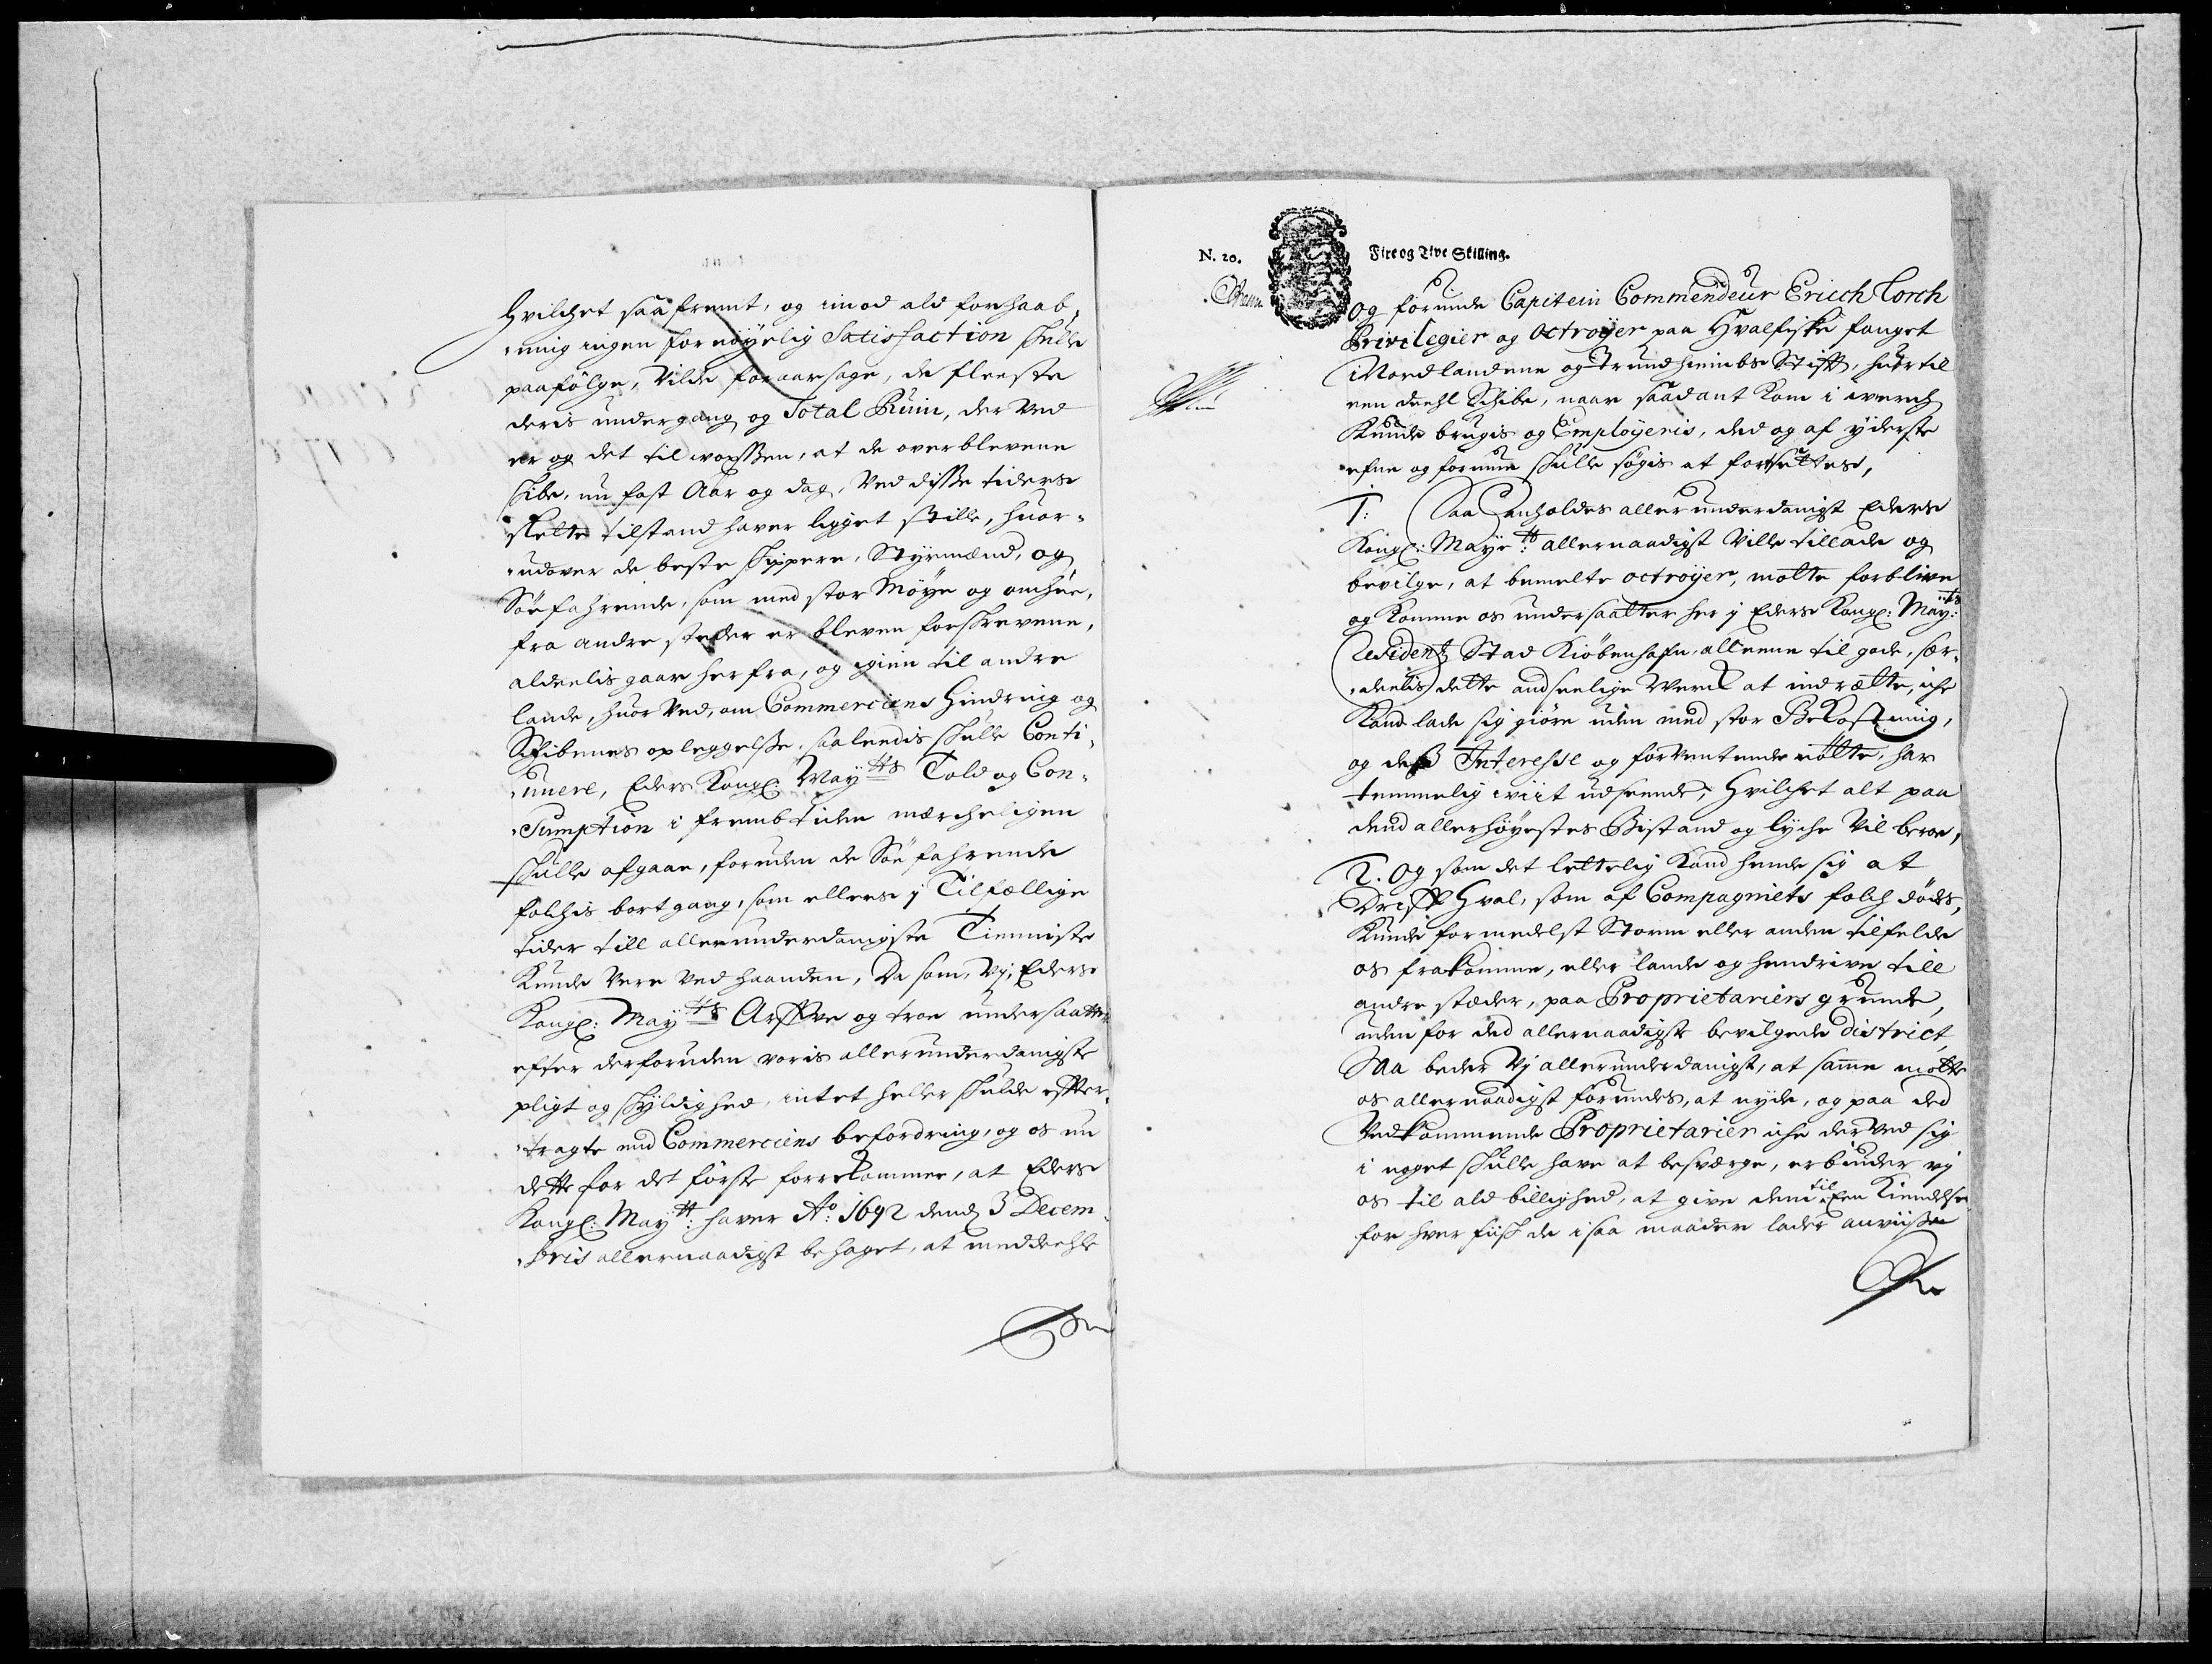 Hvilchet saafremt, og imod ald forhaab-
ning ingen fornøyelig Satisfaction skulle
paafølge, Vilde foraarsage, de fleeste
deris undergang og Total Ruin, der ved
er og det til woxssen, at de overblevene
skibe, nu fast Aar og dag, Ved disse tiders
slette tilstand haver ligget stille, huor-
udover de beste skippere, Styrmænd, og
Søefahrende, som med stor Møye og omhue,
fra andre steder er bleven forskrevene,
aldeelis gaar herfra, og igien til andre
lande, huor Ved, om Commerciens Hindring og
Skibenes opleggelsse, saaleedis skulle Conti-
nuere, Eders Kongl: May:tts Told og Con-
sumption i frembtiden mercheligen
skulle afgaae, foruden de Søefahrende
folchis bortgang, som ellers j Tilfællige
tider till allerunderdanigste Tienniste
Kunde Vere Ved haanden, Da som, Vj, Eders
Kongl: May:tts Arffve og troe undersaatter
efter derforuden voris allerunderdanigste
pligt og skyldighed, intet heller skulde efter-
tragte end Commerciens befordring, og os nu
dette for det første forrekommer, at Eders
Kongl: May:tt: haver Ao: 1692 dend 3 Decem-
bris allernaadigst behaget, at meddeehle
N. 20.
Fire og Tive Skilling.
og forunde Capitein Commendeur Erich Torch
Privilegier og Octroÿer paa Hvalfiske fanget
i Nordlandene og Trundhiembs Stift, huor til
een deehl Skibe, naar saadant Kom i werch
Kunde brugis og Employeris, ded og af yderste
efne og formue skulle søgis at fortsættes,
1: Saa anholdes allerunderdanigst Eders
Kongl: Maye:tt: allernaadigst Ville tillade og
bevilge, at bemelte octroÿer, motte forblive
og Komme os undersaatter her j Eders Kongl: May:tts
Residentz Stad Kiøbenhafn, alleene til gode, sær-
deelis dette andseelige Werck at indrætte, iche
Kand lade sig giøre uden med stor Bekostning,
og dess Interesse og forventende nøtte, har
temmelig wiit udseende, Hvilchet alt paa
dend allerhøyestes Bistand og lyche Vil beroe,
2. Og som det lettelig Kand hende sig at
Driff Hval, som af Compagniets folch dødes,
Kunde formedelst Storm eller anden tilfelde
os frakomme, eller lande og hendrive till
andre stæder, paa Proprietariers grunde,
uden for ded allernaadigste bevilgede District,
Saa beder Vj allerunderdanigst, at samme motte
os allernaadigst forundes, at nyde, og paa ded
Vedkommende Proprietarier iche derved sig
i noget skulle have at besværge, erbinder vj
os til ald billighed, at give dem til Een Kiendelse
for hver fisk de i saa maader lader anviisse